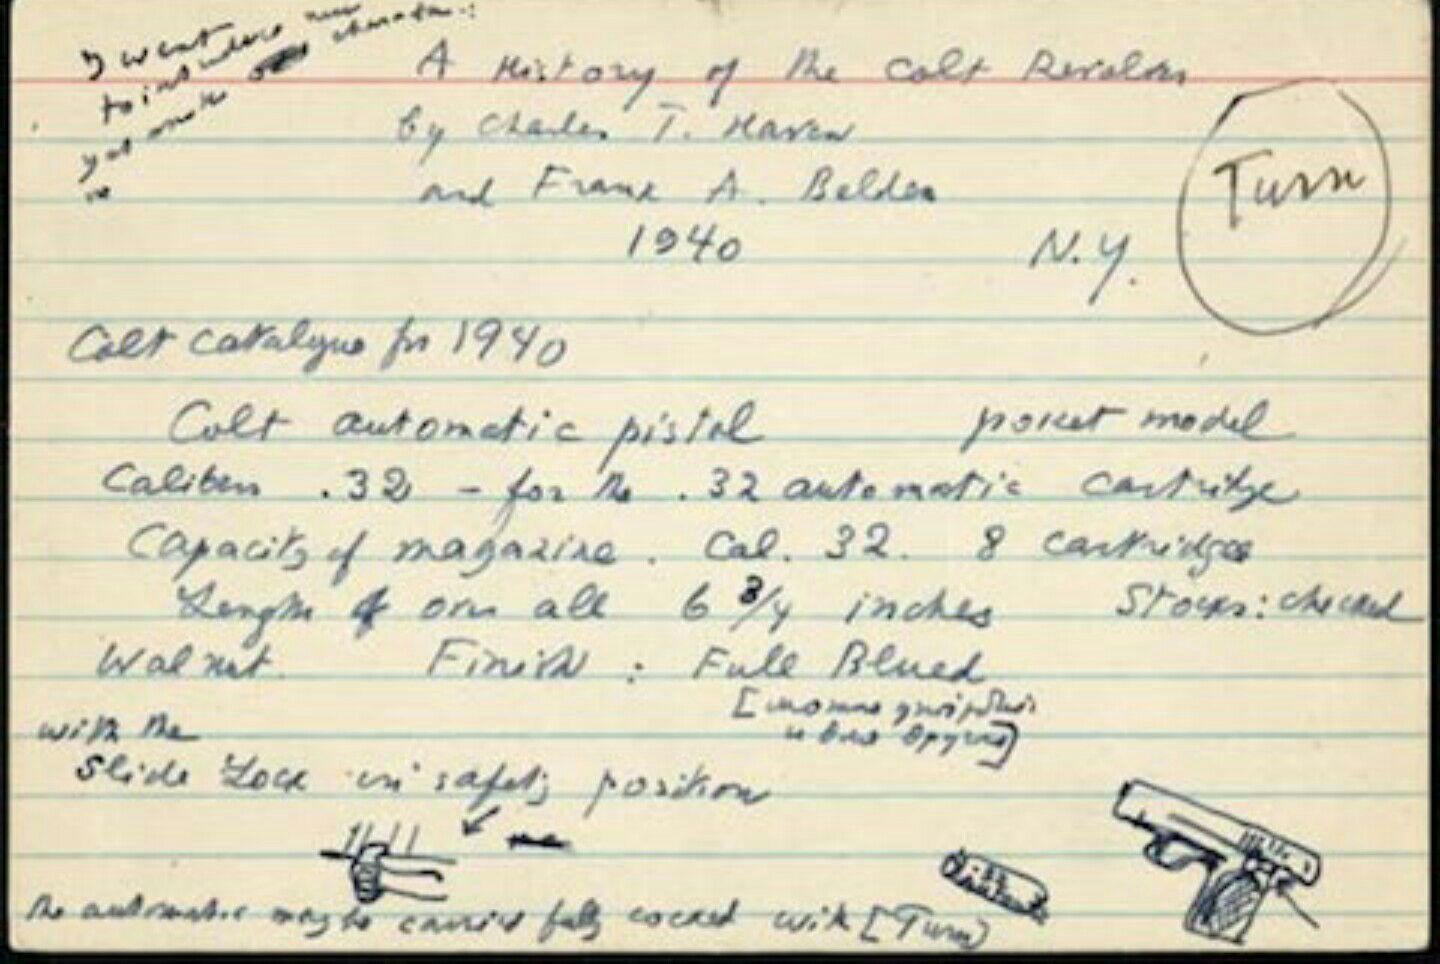 I want
to introduce new character:
yet
A History of the Colt Revolver
by Charles T. Haven
and Frank A. Belden
1940 N.Y.
Turn
Colt catalogue for 1940
Colt automatic pistol pocket model
Calibers .32 – for the .32 automatic cartridge
Capacity of magazine. Cal. 32. 8 cartridges
Length of over all 6 3/4 inches Stocks: checked
Walnut. Finish: Full Blued
with the
Slide Lock in safety position
the automatic may be carried fully cocked with [Turn]